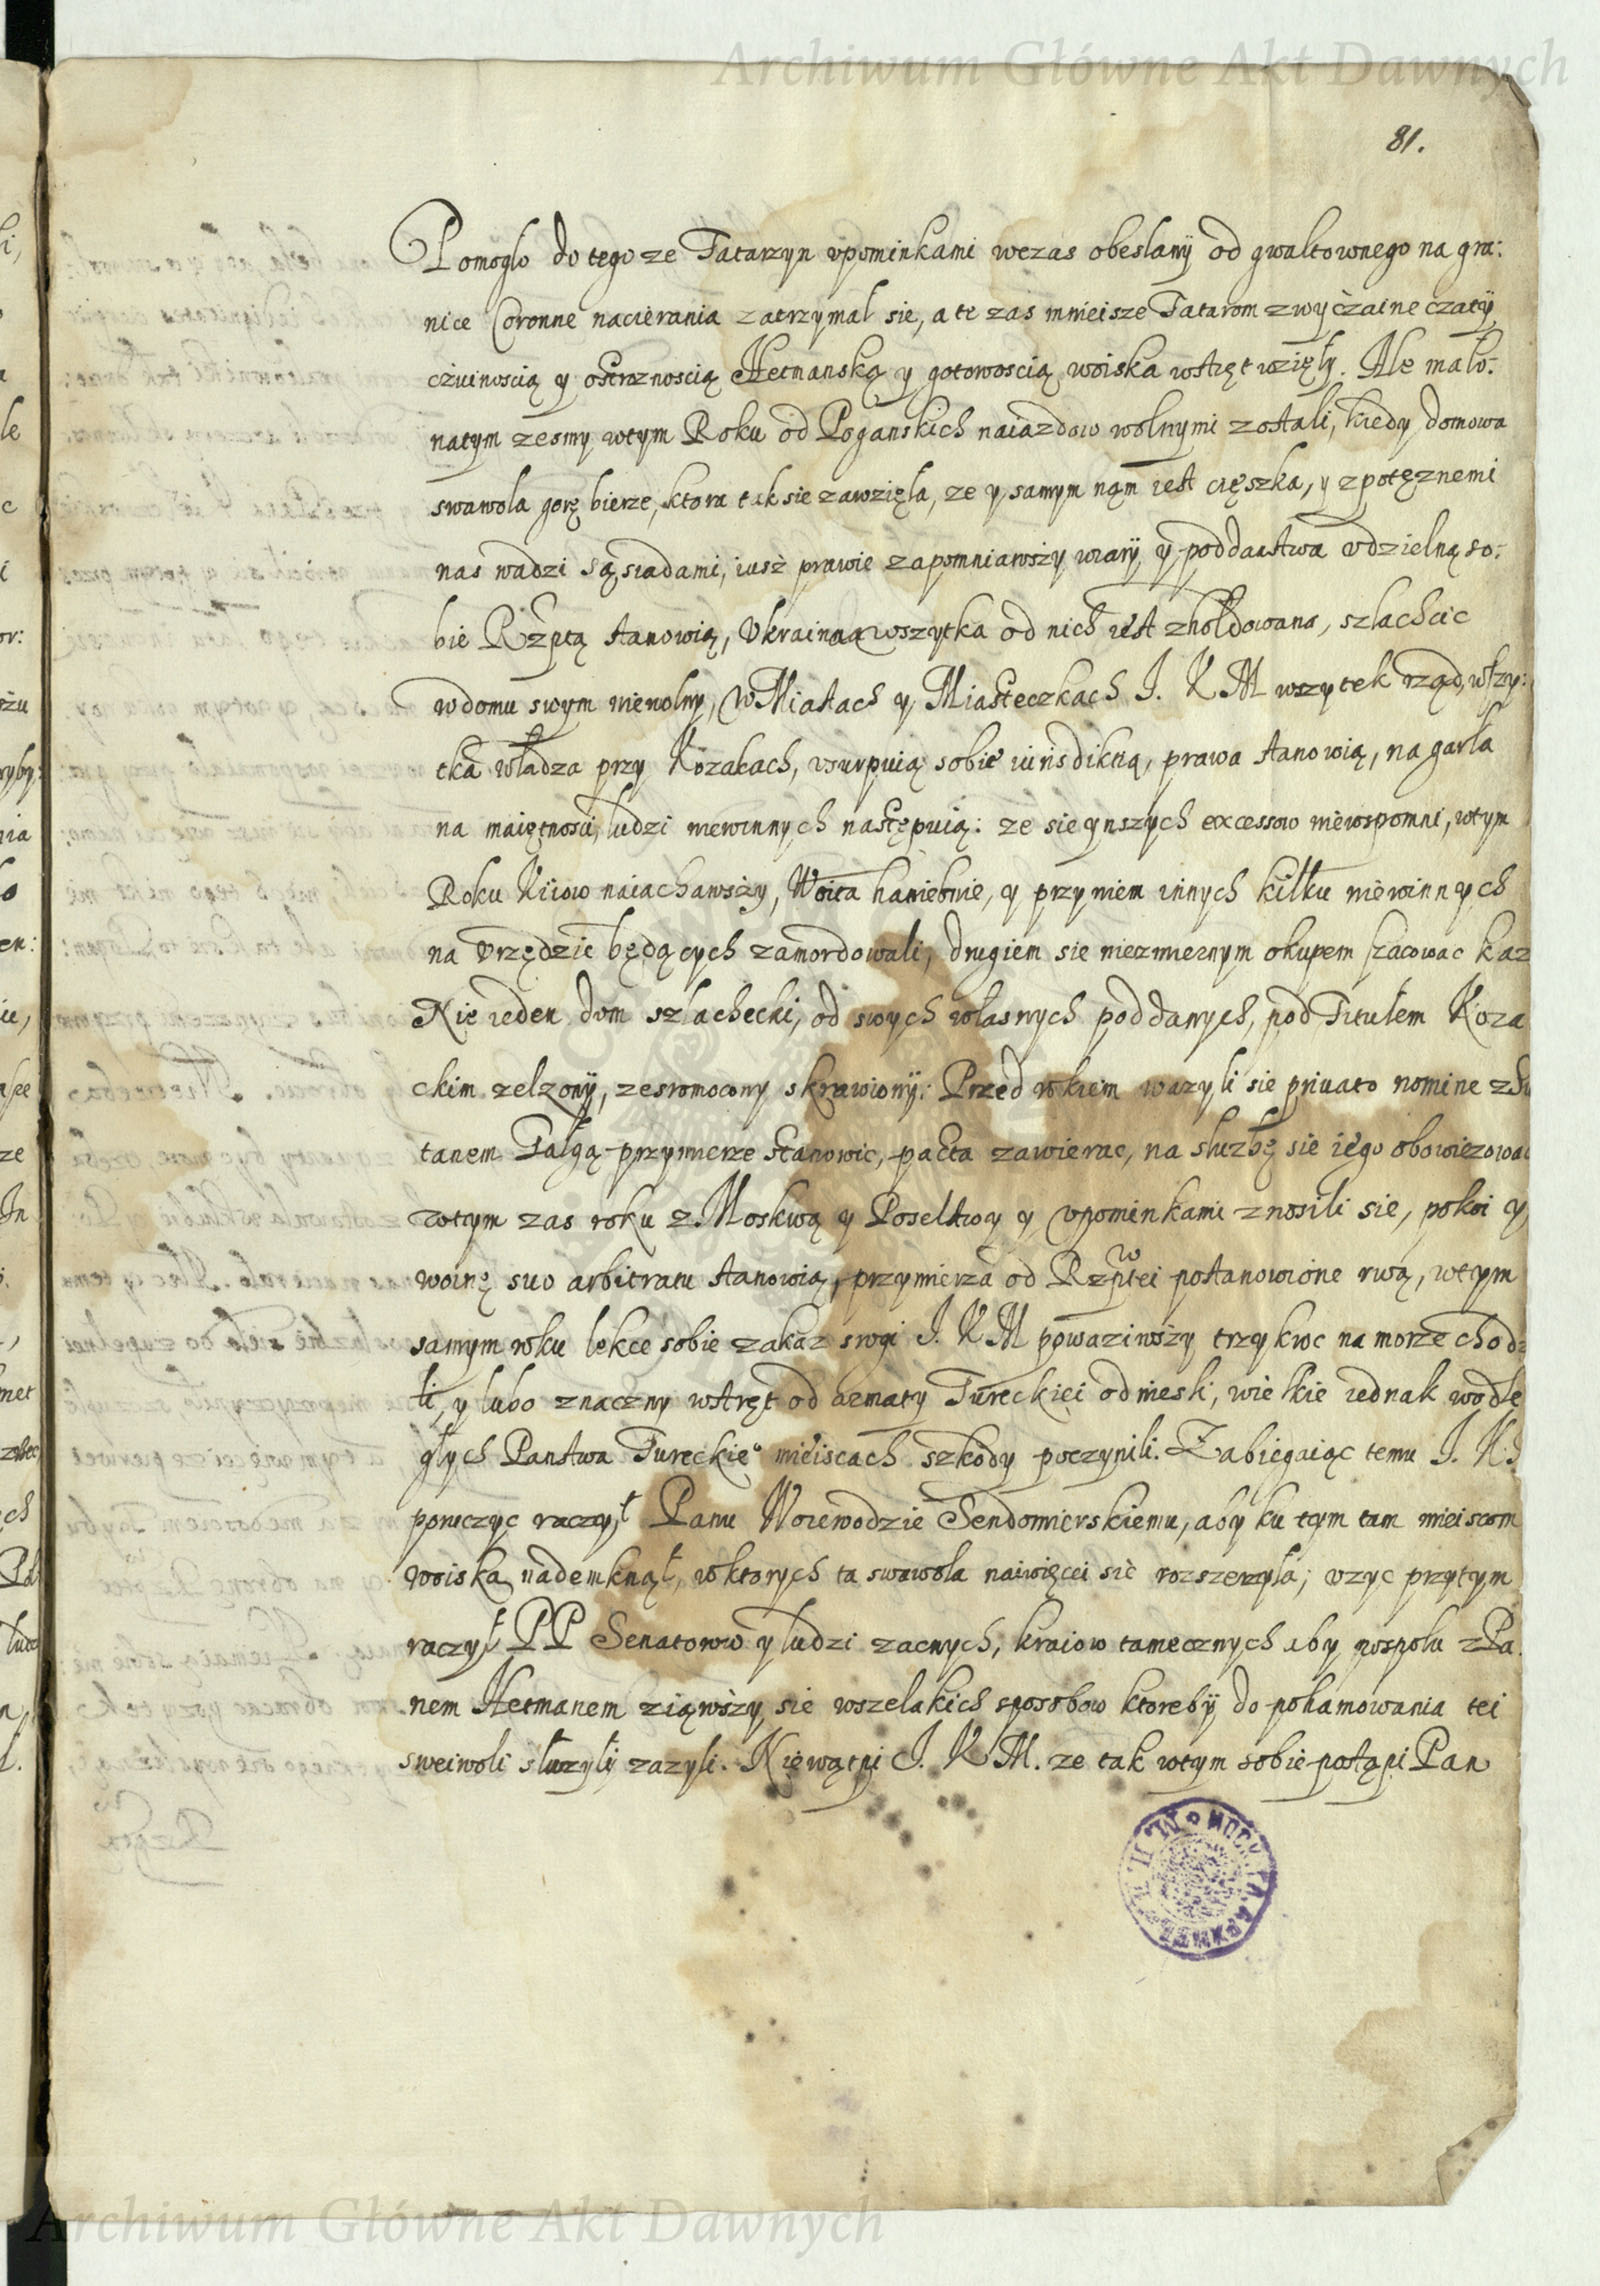 Archiwum Główne Akt Dawnych
81.
Pomoglo do tego ze Tatarzyn vpominkami wczas obeslany od gwaltownego na gra:
nice Coronne nacierania zatrzymal sie, a te zas mnieisze Tatarom zwyczaine czaty,
czuinoscią y ostroznoscią Hetmanską y gotowoscią woiska wstręt wzięly. Ale malo
natym zesmy wtym Roku od Poganskich naiazdow wolnymi zostali, kiedy domowa
swawola gorę bierze, ktora tak sie zawzięla, ze y samym nąm iest cięszka, y z potęznemi
nas wadzi sąsiadami, iusz prawie zapomniawszy wiary y poddanstwa vdzielną so:
bie Rzptą stanowią, Vkraina wszytka od nich iest zholdowana, szlachcic
wdomu swym niewolny, w Miastach y Miasteczkach J. K M wszytek rząd, wszy:
tka władza przy Kozakach, vsurpuią sobie iurisdiktią, prawa stanowią, na garla
na maiętnosci, ludzi niewinnych nastepuią: ze sie ynszych excessow niewspomni, wtym
Roku Kiiow naiachawszy, Woita haniebnie, y przyniem innych kilku niewinnych
na Vrzędzie będących zamordowali, drugiem sie niezmiernym okupem szacowac kaz
Nie ieden dom szlachecki, od swych własnych poddanych, pod Titułem Koza
ckim zelzony, zesromocony skrwawiony: Przed rokiem wazyli sie priuato nomine z Su
tanem Galgą przymierze stanowic, pacta zawierac, na sluzbę sie iego obowięzowac
wtym zas roku z Moskwą y Poselstwy y vpominkami znosili sie, pokoi y
woinę suo arbitratu stanowią, przymierza od Rzptei postanowione rwą, wtym
samym roku lekce sobie zakaz srogi J. K M powaziwszy trzykroc na morze chodz
li, y lubo znaczny wstręt od armaty Tureckiei odniesli, wielkie iednak wodle
głych Panstwa Tureckie° mieiscach szkody poczynili. Zabiegaiąc temu J. K.
poruczyc raczył Panu Woiewodzie Sendomierskiemu, aby ku tym tam mieiscom
woiska nademknął, wktorych ta swawola naiwięcei sie rozszerzyla; vzyc przytym
raczył PP Senatorow y ludzi zacnych, kraiow tamecznych aby pospolu z Pa
nem Hetmanem ziąwszy sie wszelakich sposobow ktoreby do pohamowania tei
sweiwoli sluzyly zazyli. Niewątpi J. K M. ze tak wtym sobie postąpi Pan
Archiwum Główne Akt Dawnych